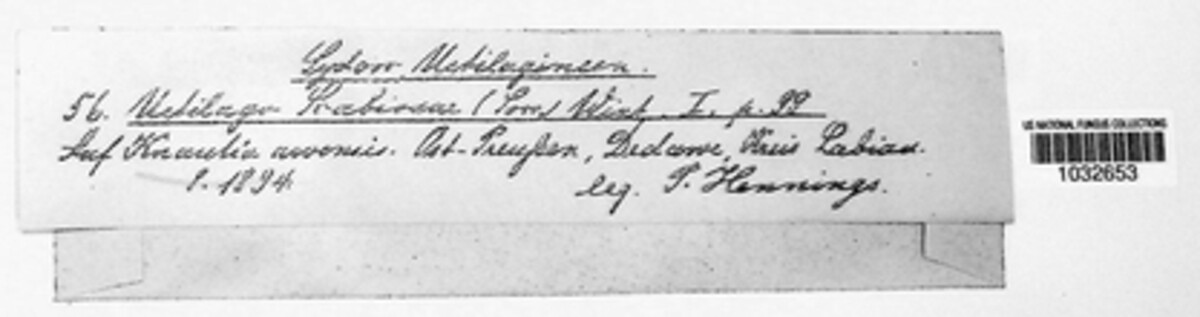 Sydow, Ustilagineen.
56. Ustilago Scabiosae (Sow.) Wint. I. p. 99
Auf Knautia arvensis. Ost-Preußen, Dedawe, Kreis Labiau.
8. 1894. leg. P. Hennings.
US NATIONAL FUNGUS COLLECTIONS
1032653